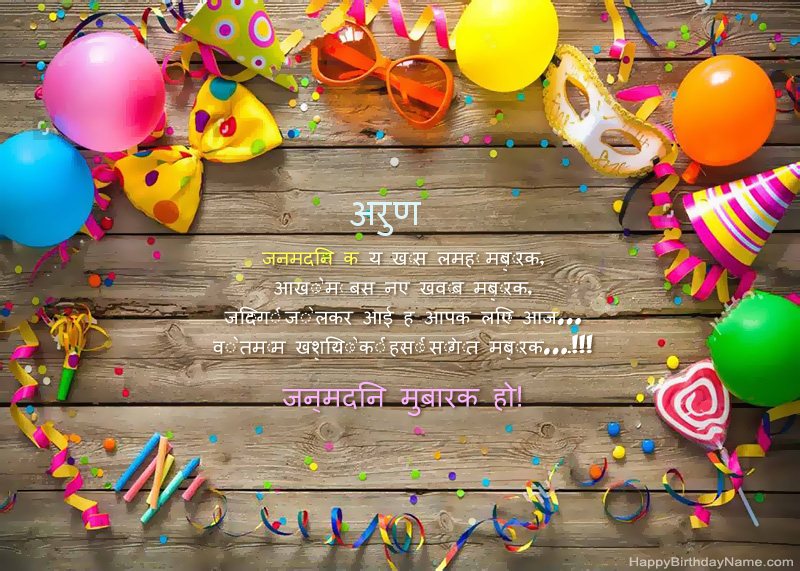 अरुण
जन्मदिन के ये खास लम्हें मुबारक,
आँखों में बसे नए ख्वाब मुबारक,
जिंदगी जो लेकर आई है आपके लिए आज...
वो तमाम खुशियों की हंसीं सौगात मुबारक...!!!
जन्मदिन मुबारक हो!
HappyBirthdayName.com